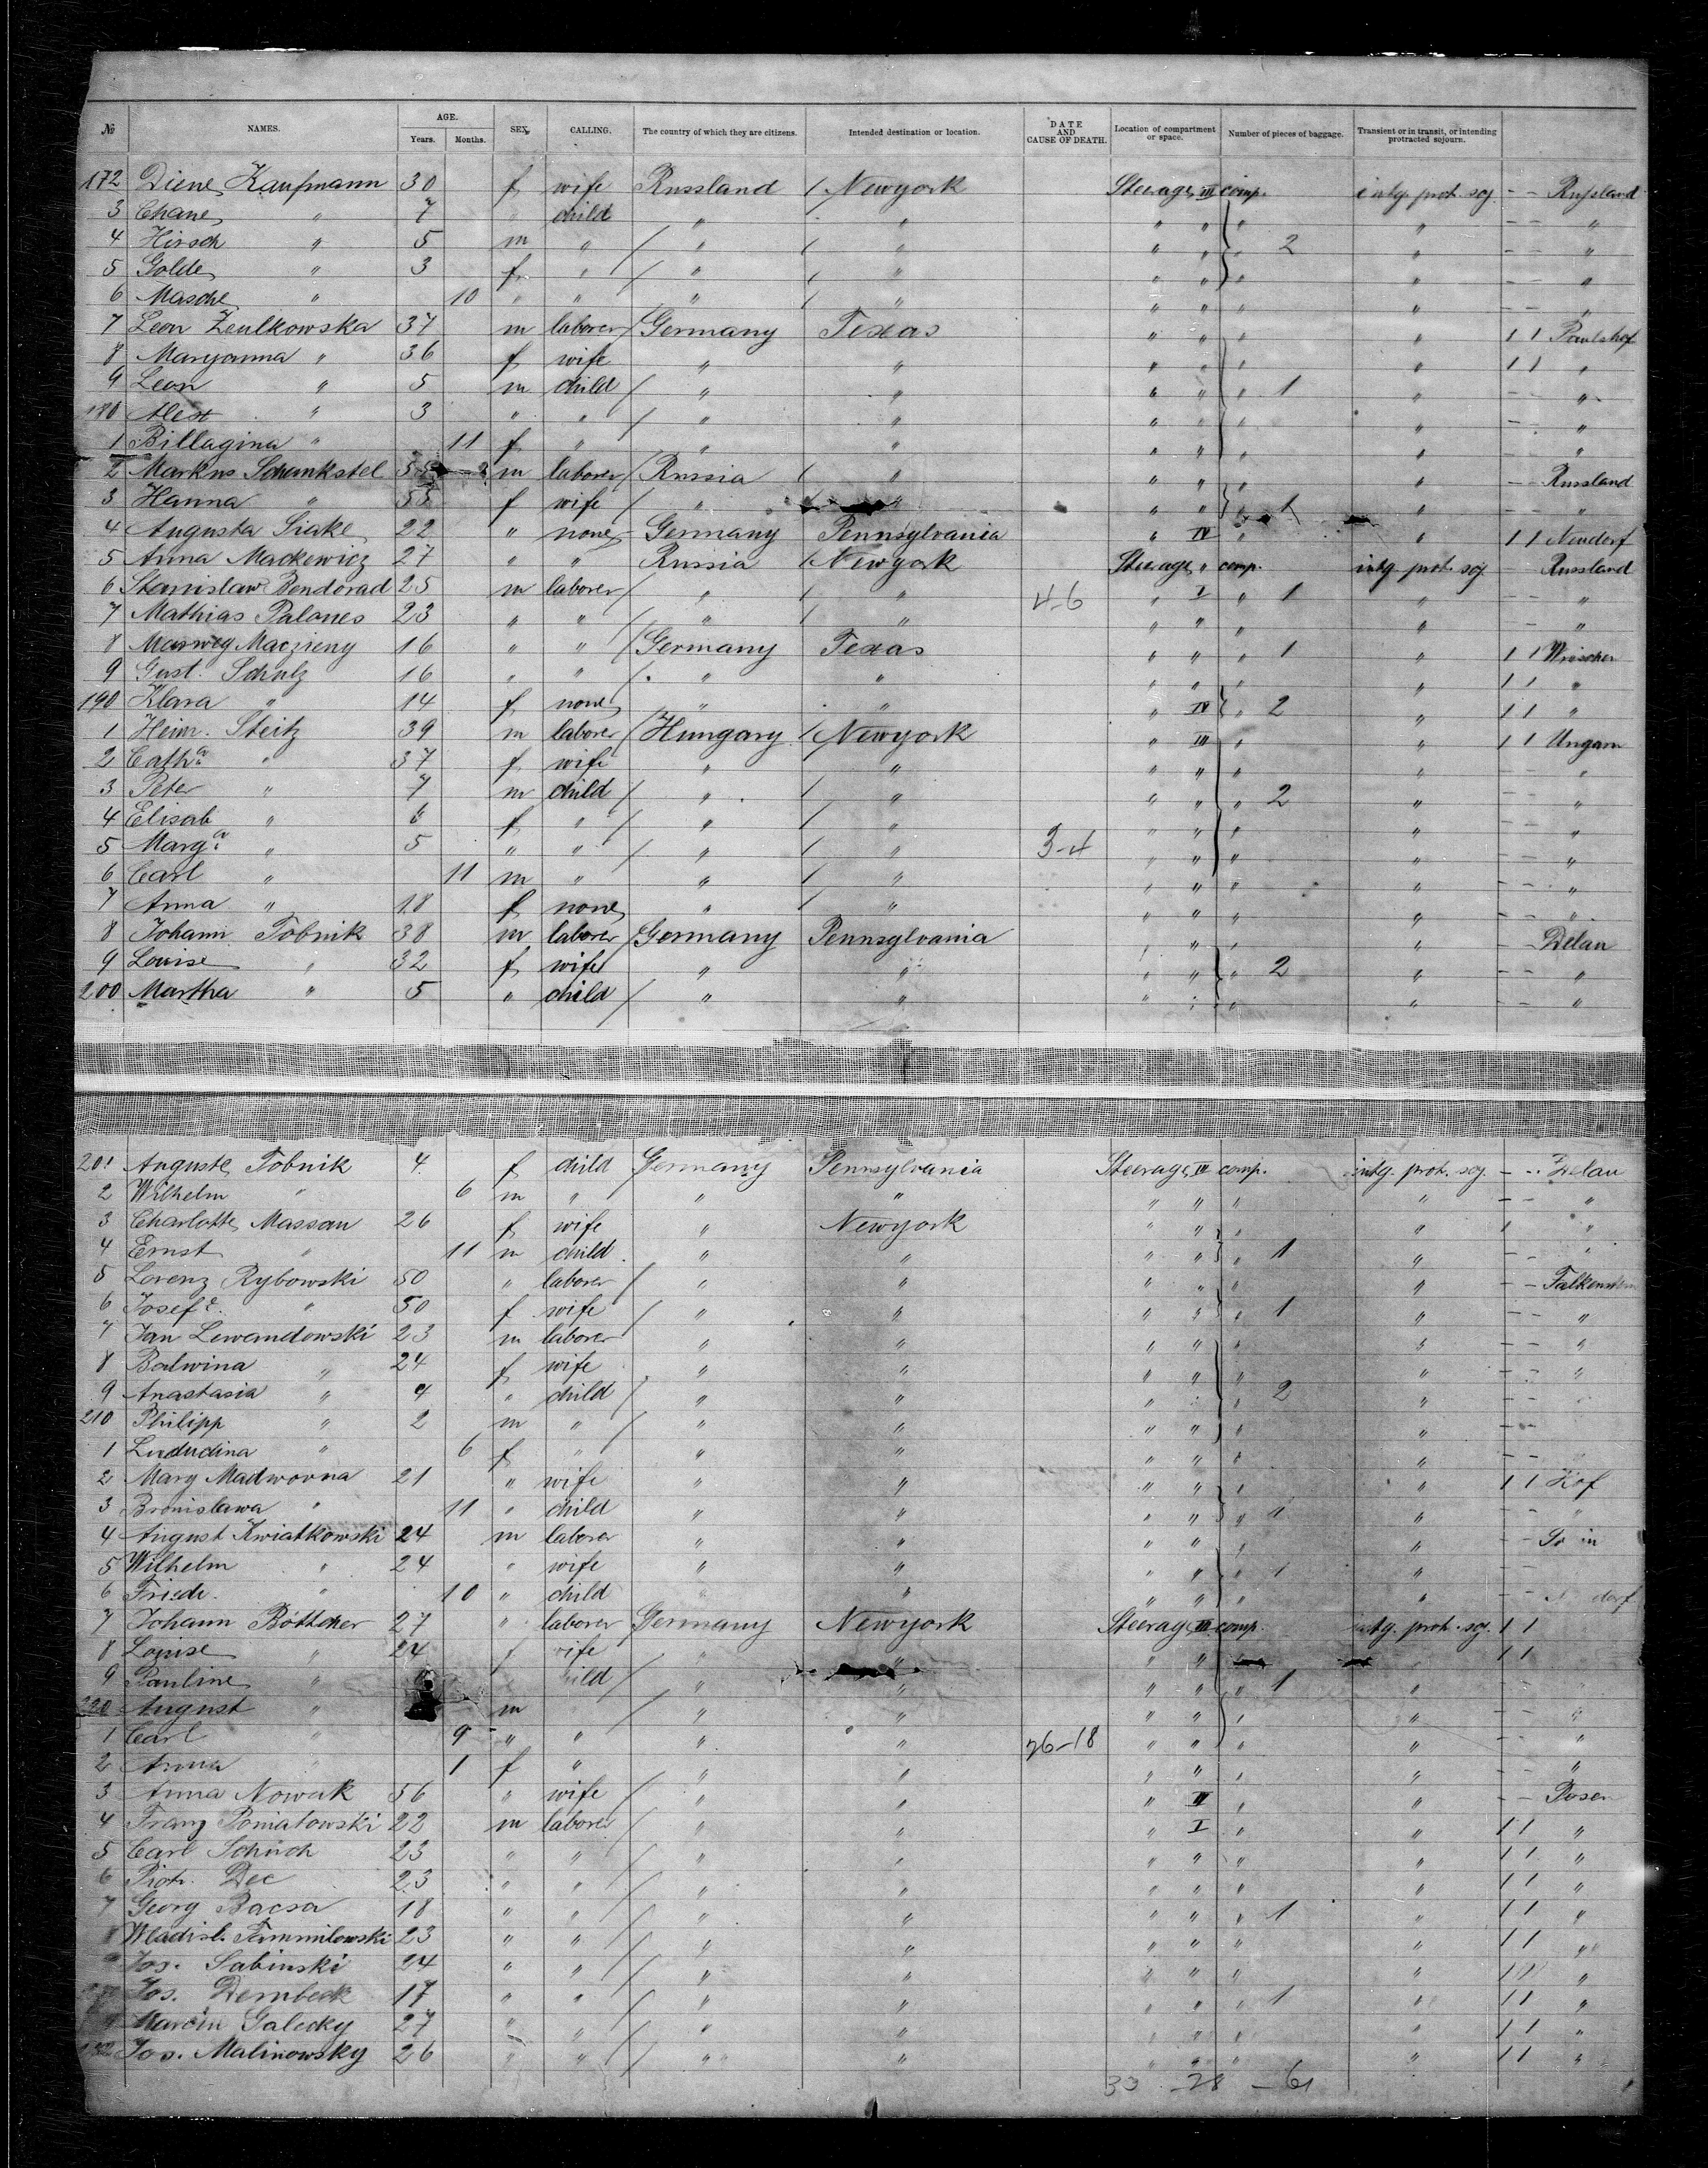 № NAMES. AGE. Years. Months. SEX. CALLING. The country of which they are citizens. Intended destination or location. DATE AND CAUSE OF DEATH. Location of compartment or space. Number of pieces of baggage. Transient or in transit, or intending protracted sojourn.
172 Diene Kaufmann 30 f wife Russland / Newyork Steerage III comp. intg. prot. soj. - - Russland
3 Chane " 7 " child " " " " " " - - "
4 Hirsch " 5 m " / " / " " " " 2 " - - "
5 Golde " 3 f " / " / " " " " " - - "
6 Masche " 10 " " " / " " " " " - - "
7 Leon Zeulkowska 37 m laborer / Germany Texas " " " " 1 1 Paulshof
8 Maryanna " 36 f wife " " " " " " 1 1 "
9 Leon " 5 m child / " " " " " 1 " - - "
180 Alex " 3 " " / " " " " " " - - "
1 Billagina " 11 f " " " " " " " - - "
2 Markus Schunkstel m laborer / Russia / " " " " " - - Russland
3 Hanna " 55 f wife / " " " " " 1 " - - "
4 Augusta Siake 22 " none Germany Pennsylvania " IV " " 1 1 Neudorf
5 Anna Mackewicz 27 " " Russia / Newyork Steerage " comp. intg. prot. soj. - Russland
6 Stanislaw Bendorad 25 m laborer / " / " 4-6 " I " 1 " - - "
7 Mathias Palones 23 " " / " / " " " " " - - "
8 Macziény 16 " " / Germany Texas " " " 1 " 1 1
9 Gust. Schulz 16 " " / " " " " " " 1 1 "
190 Klara " 14 f none " " " IV " 2 " 1 1 "
1 Heinr. Steitz 39 m laborer / Hungary / Newyork " III " " 1 1 Ungarn
2 Catha " 37 f wife " " " " " " - - "
3 Peter " 7 m child / " / " " " " 2 " - - "
4 Elisab " 6 f " / " / " " " " " - - "
5 Marga " 5 " " / " / " 3-4 " " " " - - "
6 Carl " 11 m " " / " " " " " - - "
7 Anna " 18 f none " / " " " " " - - "
8 Johann Tobnik 38 m laborer / Germany Pennsylvania " " " " - Delau
9 Louise " 32 f wife " " " " " 2 " - - "
200 Martha " 5 " child / " " " " " " - - "
201 Auguste Tobnik 4 f child Germany Pennsylvania Steerage III comp. intg. prot. soj. - - Delau
2 Wilhelm " 6 m " " " " " " " - - "
3 Charlotte Massau 26 f wife " Newyork " " " " 1 "
4 Ernst " 11 m child " " " " " 1 " - - "
5 Lorenz Rybowski 50 " laborer / " " " " " " - - Falkenstein
6 Josefe. " 50 f wife / " " " " " 1 " - - "
7 Jan Lewandowski 23 m laborer " " " " " " - - "
8 Balwina " 24 f wife " " " " " " - - "
9 Anastasia " 4 " child / " " " " " 2 " - -
210 Philipp " 2 m " / " " " " " - -
1 Lududina " 6 f " " " " " " " - -
2 Mary Madwovna 21 " wife " " " " " " 1 1 Hof
3 Bronislawa " 11 " child " " " " " 1 " - - "
4 August Kwiatkowski 24 m laborer " " " " " " - -
5 Wilhelm " 24 " wife " " " " " 1 " - -
6 Friedr. " 10 " child " " " " " " -
7 Johann Böttcher 27 " laborer Germany Newyork Steerage III comp. intg. prot. soj. 1 1
8 Louise " 24 f wife " " " " 1 1
9 Pauline " child " " " " " 1 "
220 August " m / " " " " " " - - "
1 Carl " 9 " " " " 26-18 " " " " - - "
2 Anna " 1 f " " " " " " " - - "
3 Anna Nowak 56 " wife / " " " III " " - - Posen
4 Franz Poniatowski 22 m laborer / " " " I " " 1 1 "
5 Carl Schuch 23 " " / " " " " " " 1 1 "
6 Piotr. Dec 23 " " / " " " " " " 1 1 "
7 Georg Bacsa 18 " " / " " " " " 1 " 1 1 "
8 Wladisl. Tommilowski 23 " " / " " " " " " 1 1 "
9 Jos. Sabinski 24 " " / " " " " " " 1 1 "
Jos. Dembeck 17 " " / " " " " " 1 " 1 1 "
Marcin Galecky 27 " " / " " " " " " 1 1 "
Jos. Malinowsky 26 " " / " " " " " " 1 1 "
33 - 28 - 61